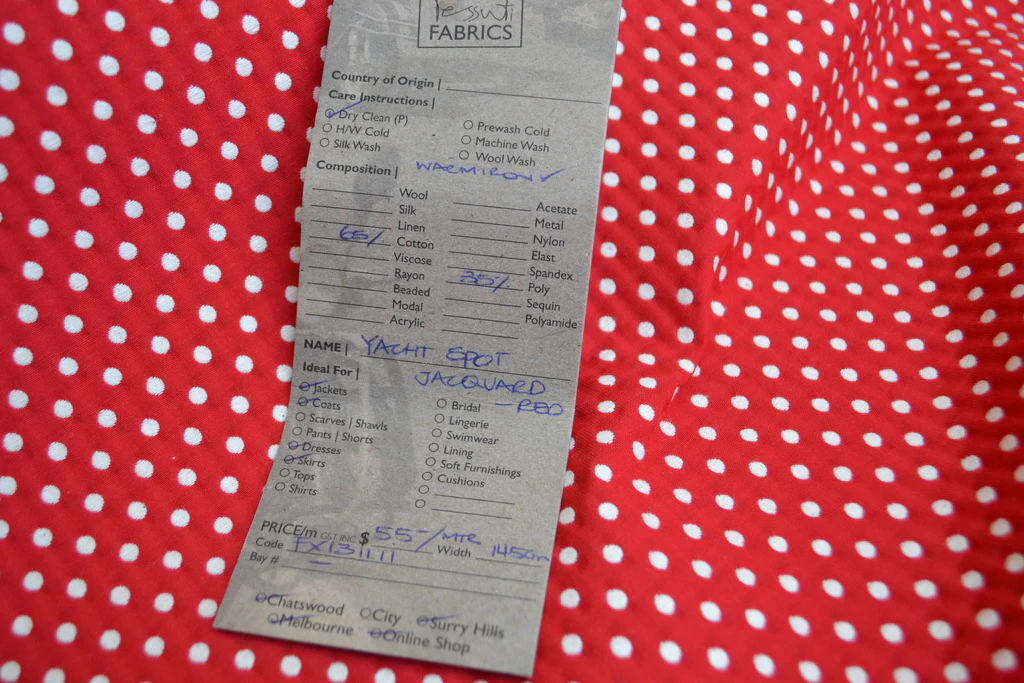 Tessuti
FABRICS
Country of Origin |
Care Instructions |
Dry Clean (P)
H/W Cold
Silk Wash
Prewash Cold
Machine Wash
Wool Wash
WARM IRON ✓
Composition |
Wool
Silk
Linen
65% Cotton
Viscose
Rayon
Beaded
Modal
Acrylic
Acetate
Metal
Nylon
Elast
Spandex
35% Poly
Sequin
Polyamide
NAME | YACHT SPOT
JACQUARD
- RED
Ideal For |
Jackets
Coats
Scarves | Shawls
Pants | Shorts
Dresses
Skirts
Tops
Shirts
Bridal
Lingerie
Swimwear
Lining
Soft Furnishings
Cushions
PRICE/m GST INC $55-/MTR
Code FX131111 Width 145cm
Bay #
Chatswood City Surry Hills
Melbourne Online Shop